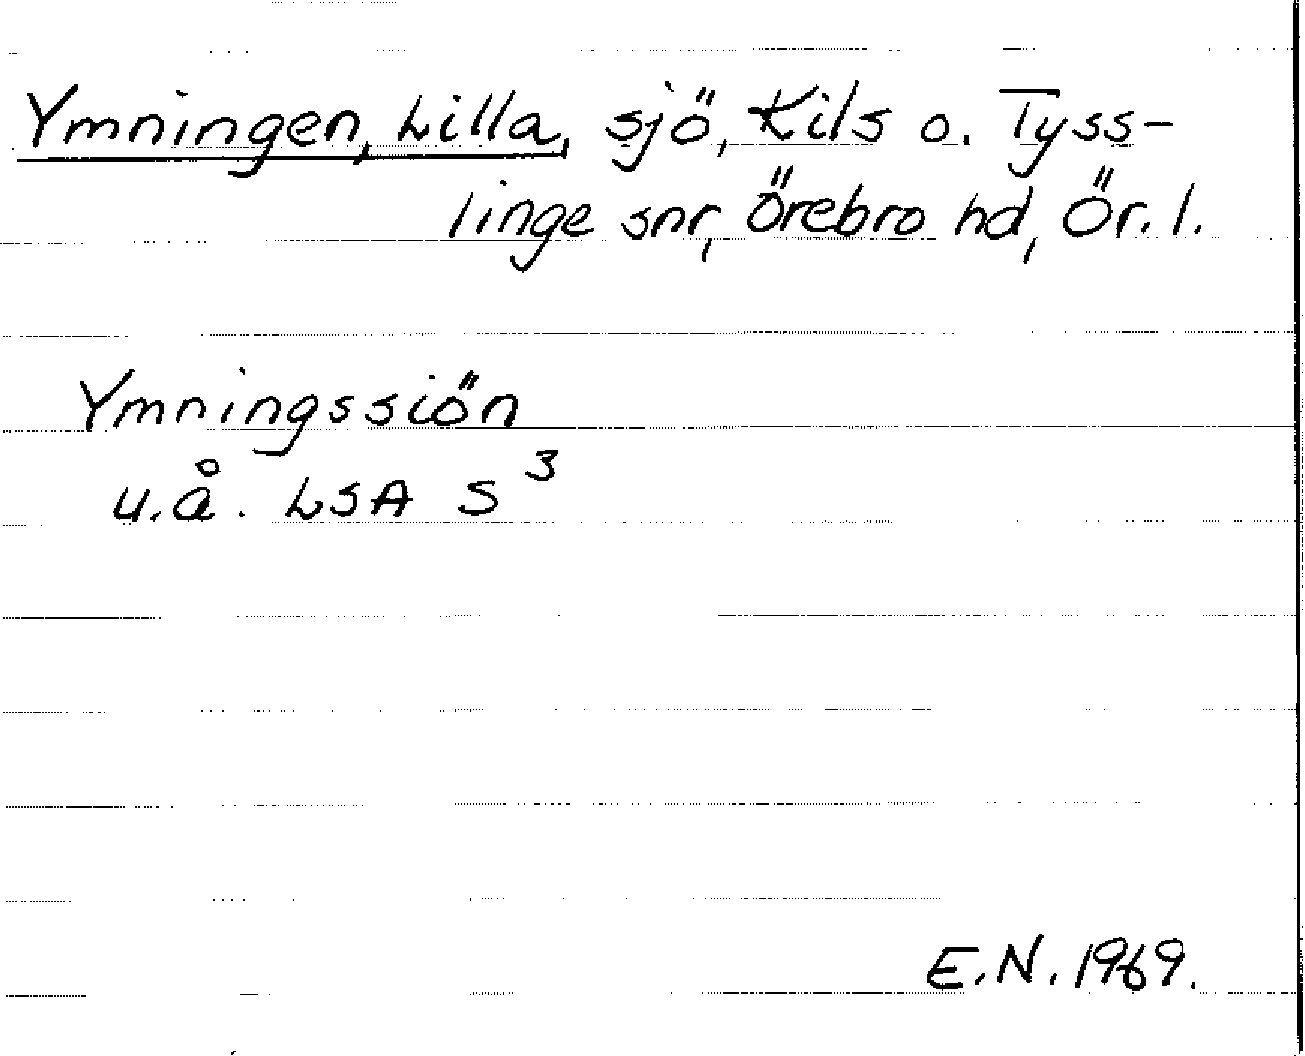 Ymningen, Lilla, sjö, Kils o. Tyss-
linge snr, Örebro hd, Ör. l.
Ymningssiön
u.å. LSA S³
E.N. 1969.